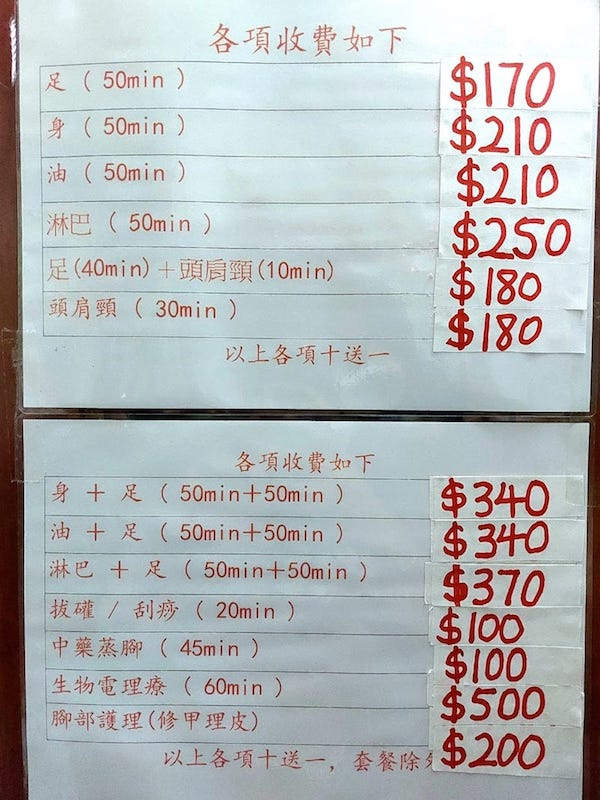 各項收費如下
足 ( 50min ) $170
身 ( 50min ) $210
油 ( 50min ) $210
淋巴 ( 50min ) $250
足(40min)＋頭肩頸(10min) $180
頭肩頸 ( 30min ) $180
以上各項十送一
各項收費如下
身 ＋ 足 ( 50min＋50min ) $340
油 ＋ 足 ( 50min＋50min ) $340
淋巴 ＋ 足 ( 50min＋50min ) $370
拔罐 / 刮痧 ( 20min ) $100
中藥蒸腳 ( 45min ) $100
生物電理療 ( 60min ) $500
腳部護理(修甲理皮) $200
以上各項十送一，套餐除